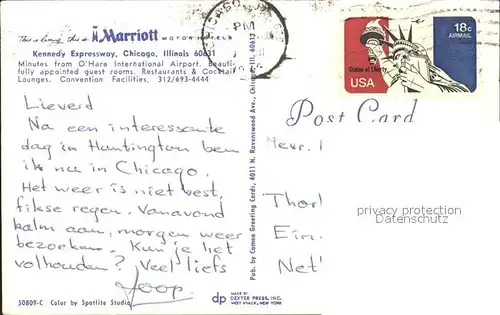 This is living, this is Marriott MOTOR HOTELS
Kennedy Expressway, Chicago, Illinois 60631
Minutes from O'Hare International Airport. Beauti-
fully appointed guest rooms. Restaurants & Cocktail
Lounges. Convention Facilities, 312/693-4444
CHICAGO
PM
18c
AIRMAIL
Statue of Liberty
USA
Lieverd
Na een interessante
dag in Huntington ben
ik nu in Chicago.
Het weer is niet best,
fikse regen. Vanavond
kalm aan, morgen weer
bezoeken. Kun je het
volhouden? Veel liefs
Joop.
50809-C Color by Spotlite Studio
Pub. by Cameo Greeting Cards, 4011 N. Ravenswood Ave., Chicago, Ill. 60613
dp MADE BY
DEXTER PRESS, INC.
WEST NYACK, NEW YORK
Post Card
Mevr.
Thor
Ein
Net
privacy protection
Datenschutz